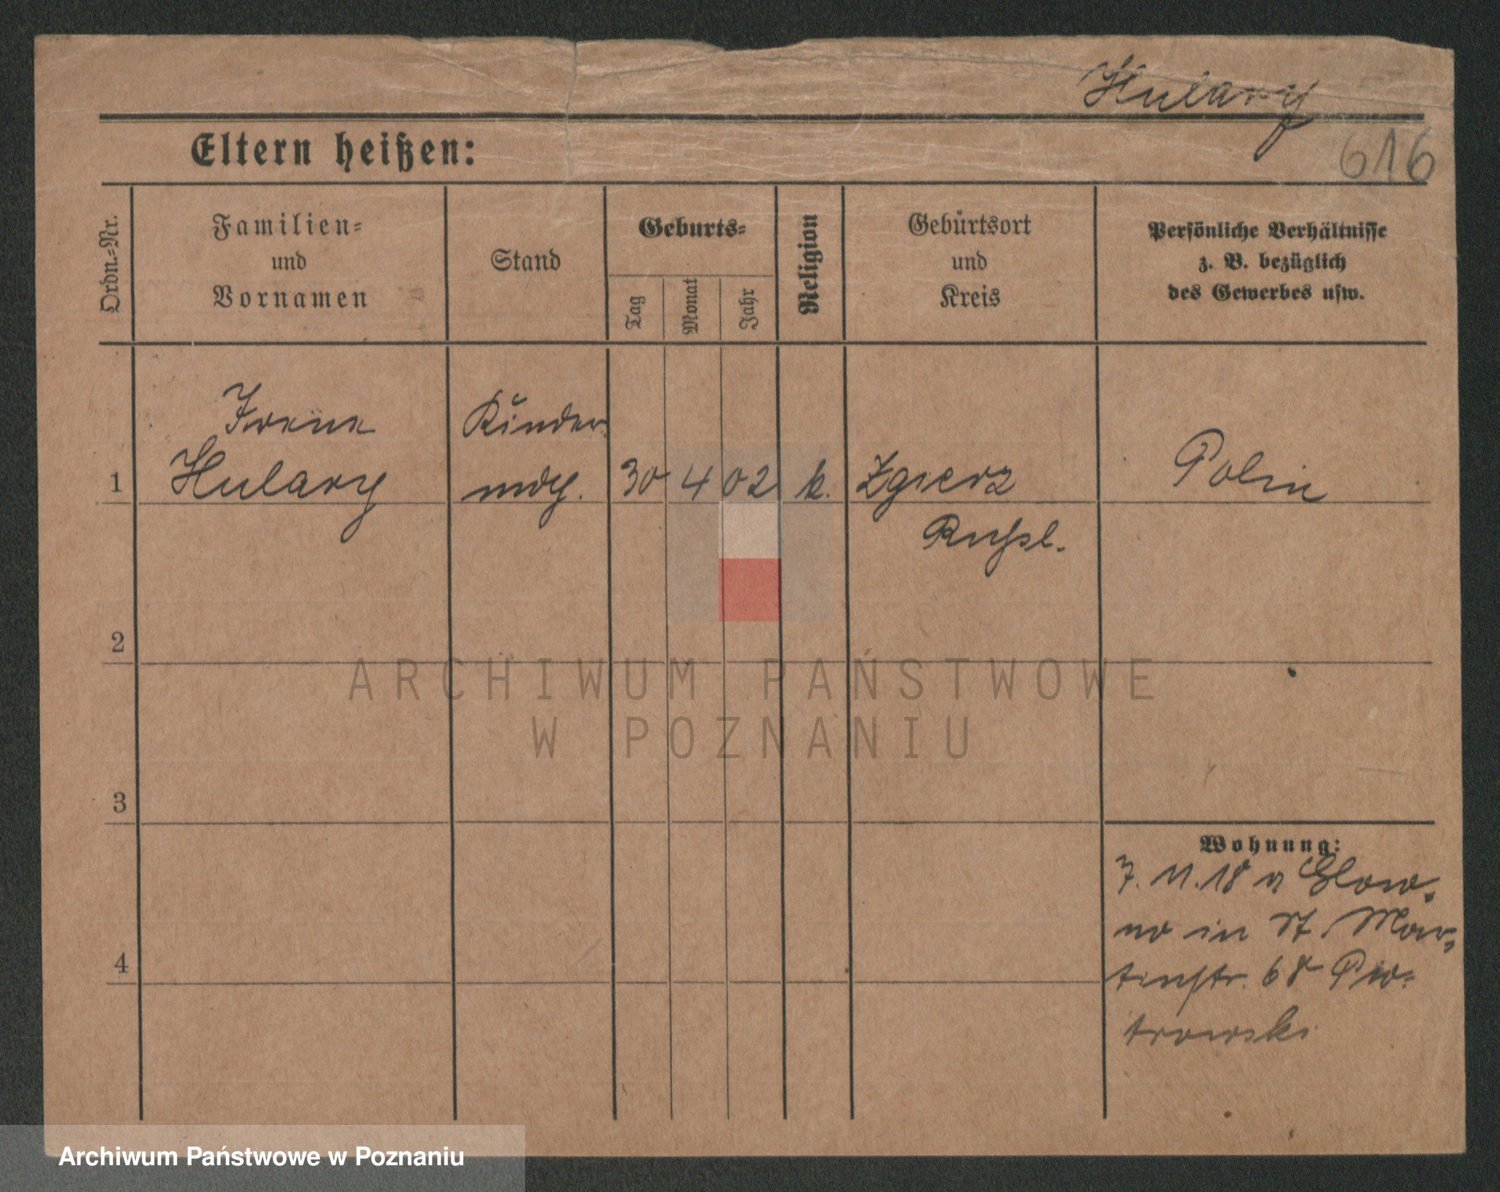 Hulary
616
Eltern heißen:
Ordn.-Nr.
Familien-
und
Vornamen
Stand
Geburts-
Tag
Monat
Jahr
Religion
Geburtsort
und
Kreis
Persönliche Verhältnisse
z. B. bezüglich
des Gewerbes usw.
1
Irene
Hulary
Kinder
mdch.
30
4
02
k.
Zgierz
Russl.
Polin
2
ARCHIWUM PAŃSTWOWE
W POZNANIU
3
4
Wohnung:
7. 11. 18 v Glow-
no in St. Mar-
tinstr. 68 Pio-
trowski
Archiwum Państwowe w Poznaniu